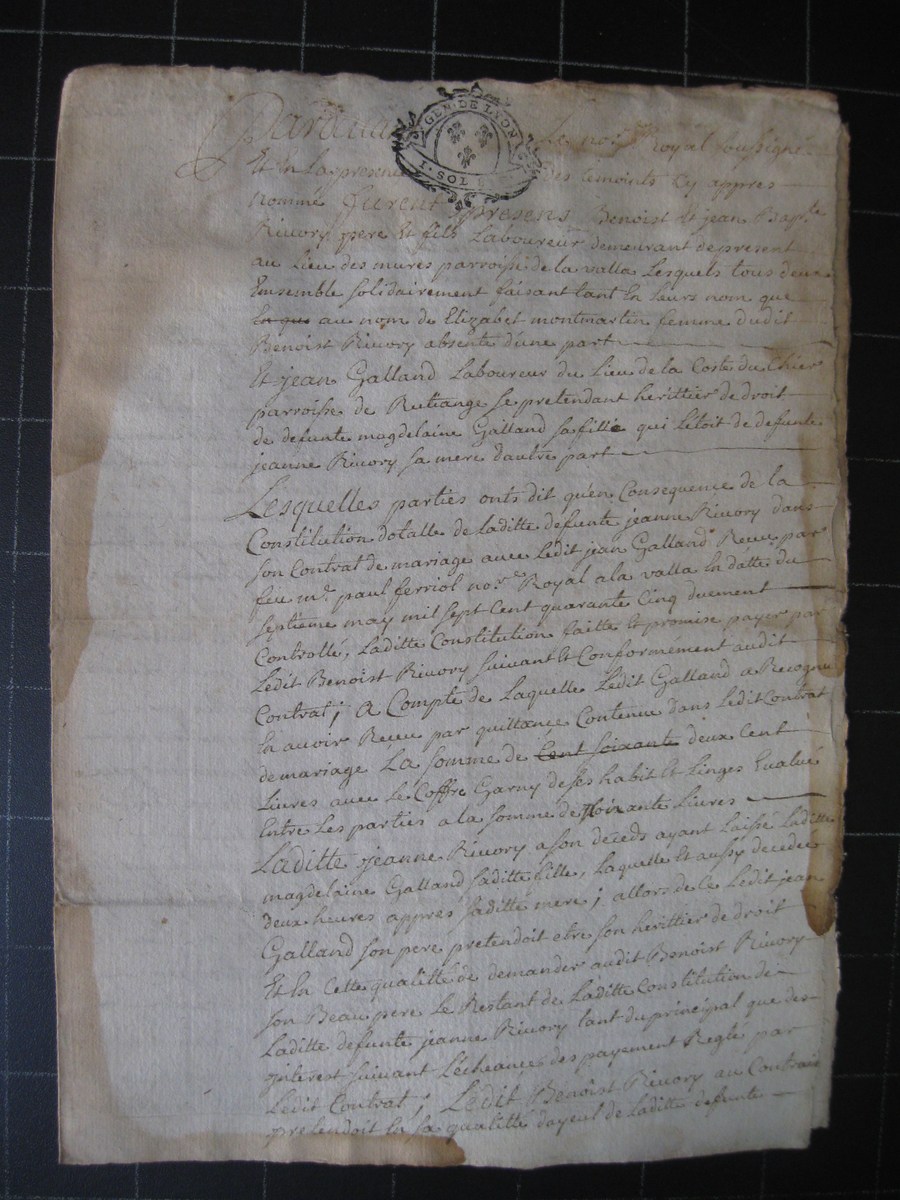 GEN. DE LYON
1. SOL
Pardevant Le no.re royal soussigné
Et En La presence des temoints cy appres
nommé furent presens Benoist Et jean Bap.te
Rivory pere Et fils Laboureur demeurant de present
au Lieu des mures parroisse de la valla Lesquels tous deux
Ensemble solidairement faisant tant En Leurs nom que
En que au nom de Elizabet montmartin femme dudit
Benoist Rivory absente d'une part
Et jean Galland Laboureur du Lieu de la Coste du Chier
parroisse de se pretendant hérittier de droit
de defunte magdelaine Galland sa fille qui L'etoit de defunte
jeanne Rivory sa mere d'autre part
Lesquelles parties onts dit qu'en Consequence de la
Constitution dotalle de laditte defunte jeanne Rivory dans
son Contrat de mariage avec Ledit jean Galland Receu par
feu m.e paul ferriol no.re Royal a la valla En datte du
septieme may mil sept Cent quarante Cinq duement
Controllé, Laditte Constitution faitte Et promise payer par
Ledit Benoist Rivory suivant Et Conformément audit
Contrat; A Compte de Laquelle Ledit Galland a Recognu
En avoir Receu par quittance Contenue dans Ledit Contrat
de mariage La somme de Cent soixante deux Cent
Livres avec Le Coffre Garny de ses habit Et Linges Evalué
Entre Les parties a la somme de soixante Livres
Laditte jeanne Rivory a son déceds ayant Laissé Laditte
magdelaine Galland saditte fille, Laquelle Et aussy decedée
deux heures appres saditte mere; allors de ce Ledit jean
Galland son pere pretendoit etre son herittier de droit
Et En Cette qualitté de demander audit Benoist Rivory
son Beau pere Le Restant de Laditte Constitution de
Laditte defunte jeanne Rivory tant du principal que des
interest suivant L'écheance des payement Reglé par
Ledit Contrat; Ledit Benoist Rivory au Contraire
pretendoit En sa qualitté d'ayeul de Laditte defunte